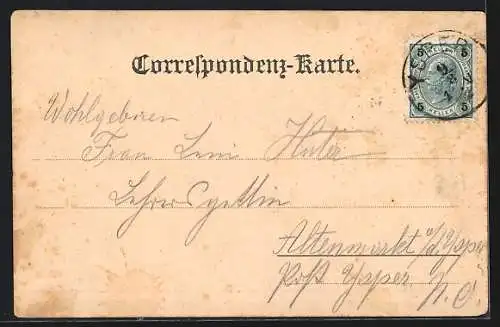 Correspondenz-Karte.
5 5
5 5
Wohlgeboren
Frau Leni Huter
Lehrersgattin
Altenmarkt a/d. Ysper
Post Ysper. N. Ö.